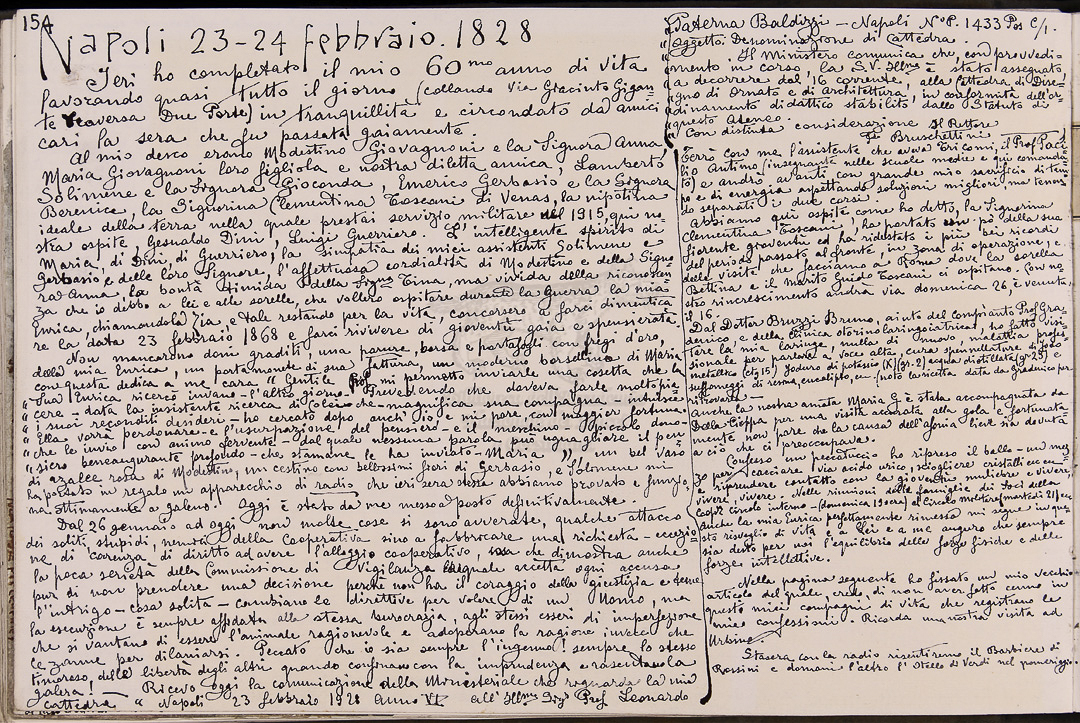 154
Napoli 23-24 febbraio. 1828
Ieri ho completato il mio 60mo anno di vita
lavorando quasi tutto il giorno (collando Via Giacinto Gigan-
te traversa Due Porte) in tranquillità e circondato da amici
cari la sera che fu passata gaiamente.
Al mio desco erano Modestino Giovagnoni e la Signora Anna
Maria Giovagnoni loro figliola e nostra diletta amica, Lamberto
Solimene e la Signora Gioconda, Emerico Gerbasio e la Signora
Berenice, la Signorina Clementina Toscani di Venas, la nipotina
ideale della terra nella quale prestai servizio militare nel 1915, qui no-
stra ospite, Gesualdo Dini, Luigi Guerriero. L'intelligente spirito di
Maria, di Dini, di Guerriero, la simpatia dei miei assistenti Solimene e
Gerbasio e delle loro Signore, l'affettuosa cordialità di Modestino e della Signo
ra Anna, la bontà timida della Sigra Tina, ma vivida della riconoscen
za che io debbo a lei e alle sorelle, che vollero ospitare durante la Guerra la mia
Enrica, chiamandola Zia, e tale restando per la vita, concorsero a farci dimentica
re la data 23 febbraio 1868 e farci rivivere di gioventù gaia e spensierata.
Non mancarono doni graditi, una parure, borsa e portafogli con fregi d'oro,
della mia Enrica, un portamonete di sua fattura, un moderno borsellino di Maria
con questa dedica a me cara " Gentile Prof. mi permetto inviarle una cosetta che la
" Sua Enrica ricercò invano - l'altro giorno - Prevedendo che doveva farle molto pia-
" cere - data la insistente ricerca di Colei che - magnifica sua compagna - intuisce
" i suoi reconditi desideri - ho cercato dopo di gio e mi pare, con maggior fortuna.
" Ella vorrà perdonare l'usurpazione del pensiero - e il meschino - piccolo dono -
" che le invio con animo fervente - dal quale nessuna parola può uguagliare il pen-
" siero beneaugurante profondo - che stamane le ha inviato - Maria ", un bel vaso
di azalee rosa di Modestino, un cestino con bellissimi fiori di Gerbasio, e Solomene mi
ha portato in regalo un apparecchio di radio che ieri sera stessa abbiamo provato e funzio-
na ottimamente a galeno. Oggi è stato da me messo a posto definitivamente.
Dal 26 gennaio ad oggi non molte cose si sono avverate, qualche attacco
dei soliti stupidi, nemici della Cooperativa sino a fabbricare una richiesta - eccezio-
ne di carenza di diritto ad avere l'alloggio cooperativo, cosa che dimostra anche
la poca serietà della Commissione di Vigilanza la quale accetta ogni accusa
pur di non prendere una decisione perchè non ha il coraggio della giustizia e teme
l'intrigo - cosa solita - cambiano le direttive per volere di un Uomo, ma
la esecuzione è sempre affidata alla stessa burocrazia, agli stessi esseri di imperfezione
che si vantano di essere l'animale ragionevole e adoperano la ragione invece che
le zanne per dilaniarsi. Peccato che io sia sempre l'ingenuo! sempre lo stesso
timoroso, della libertà degli altri quando confinano con la imprudenza e rasentano la
galera! - Ricevo oggi la comunicazione della Ministeriale che riguarda la mia
cattedra " Napoli 23 febbraio 1928 Anno VI. All'Illmo Sigr Prof Leonardo
Paterna Baldizzi - Napoli No P. 1433 Pos C/1.
Oggetto: Denominazione di Cattedra.
" Il Ministero comunica che, con provvedi-
" mento in corso, la S.V. Illma è stato assegnato
" a decorrere dal 16 corrente, alla Cattedra di Dise-
" gno di Ornato e di architettura, in conformità dell'or-
" dinamento didattico stabilito dallo Statuto di
" questo Ateneo.
" Con distinta considerazione Il Rettore
Fto Bruschettini
Terrò con me l'assistente che aveva Tricomi, il Prof Paci-
lio Antimo (insegnante nelle scuole medie e qui comanda-
to) e andrò avanti con grande mio sacrificio di tem-
po e di energia aspettando soluzioni migliori ma tenen-
do separati i due corsi.
Abbiamo qui ospite come ho detto, la Signorina
Clementina Toscani, ha portato un pò della sua
fiorente gioventù ed ha ridestato i più bei ricordi
del periodo passato al fronte, in zona di operazione, e
delle visite che facciamo a Roma dove la sorella
Bettina e il marito Guido Toscani ci ospitano. Con no-
stro rincrescimento andrà via domenica 26, è venuta
il 16.
Dal Dottor Bruzzi Bruno, aiuto del compianto Prof Gra-
denico, e della Clinica otorinolaringoiatrica, ho fatto visi-
tare la mia laringe, nulla di nuovo, malattia profes-
sionale per parlare a voce alta, cura spennellatura di Jodo
metallico (ctg 15) Joduro di potassio (K) (gr. 2) acqua distillata (gr 25) e
suffumeggi di senna, eucalipto, ec - (noto la ricetta data da Gradenico per
ritrovarla -
Anche la nostra amata Maria G. è stata accompagnata da
Della Cioppa per una visita accurata alla gola e fortunata-
mente non pare che la causa dell'afonia lieve sia dovuta
a ciò che ci preoccupava.
Confesso un peccatuccio ho ripreso il ballo - un mez-
zo per cacciare via acido urico, sciogliere cristalli ec ec,
e riprendere contatto con la gioventù muliebre e vivere
vivere, vivere. Nelle riunioni delle famiglie dei Soci della
Coopa circolo interno - (domenica 19 era) al Circolo militare (martedì 21) ec
anche la mia Enrica perfettamente rimessa mi segue in que-
sto risveglio di vita e a Lei e a me auguro che sempre
sia desto per noi l'equilibrio delle forze fisiche e delle
forze intellettive.
Nella pagina seguente ho fissato un mio vecchio
articolo del quale, credo, di non aver fatto cenno in
questo miei compagni di vita che registrano le
mie confessioni. Ricorda una nostra visita ad
Urbino.
Stasera con la radio risentiremo il Barbiere di
Rossini e domani l'altro l'Otello di Verdi nel pomeriggio.